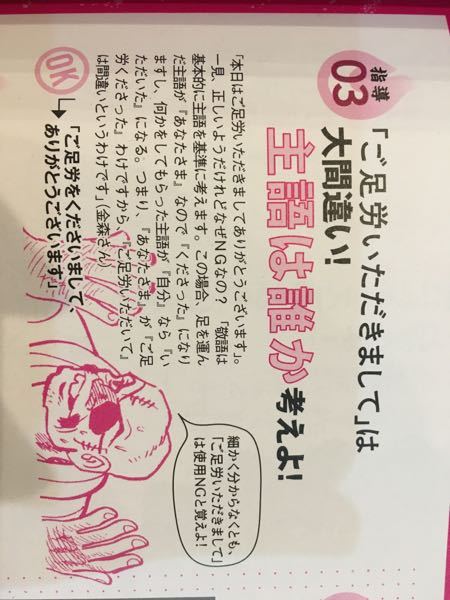 指導
03
「ご足労いただきまして」は
大間違い!
主語は誰か考えよ!
「本日はご足労いただきましてありがとうございます」。
一見、正しいようだけれどなぜNGなの? 「敬語は
基本的に主語を基準に考えます。この場合、足を運ん
だ主語が『あなたさま』なので『くださった』になり
ますし、何かをしてもらった主語が『自分』なら『い
ただいた』になる。つまり、『あなたさま』が『ご足
労くださった』わけですから、『ご足労いただいて』
は間違いというわけです」(金森さん)
OK
「ご足労をくださいまして、
ありがとうございます」
細かく分からなくとも、
「ご足労いただきまして」
は使用NGと覚えよ!